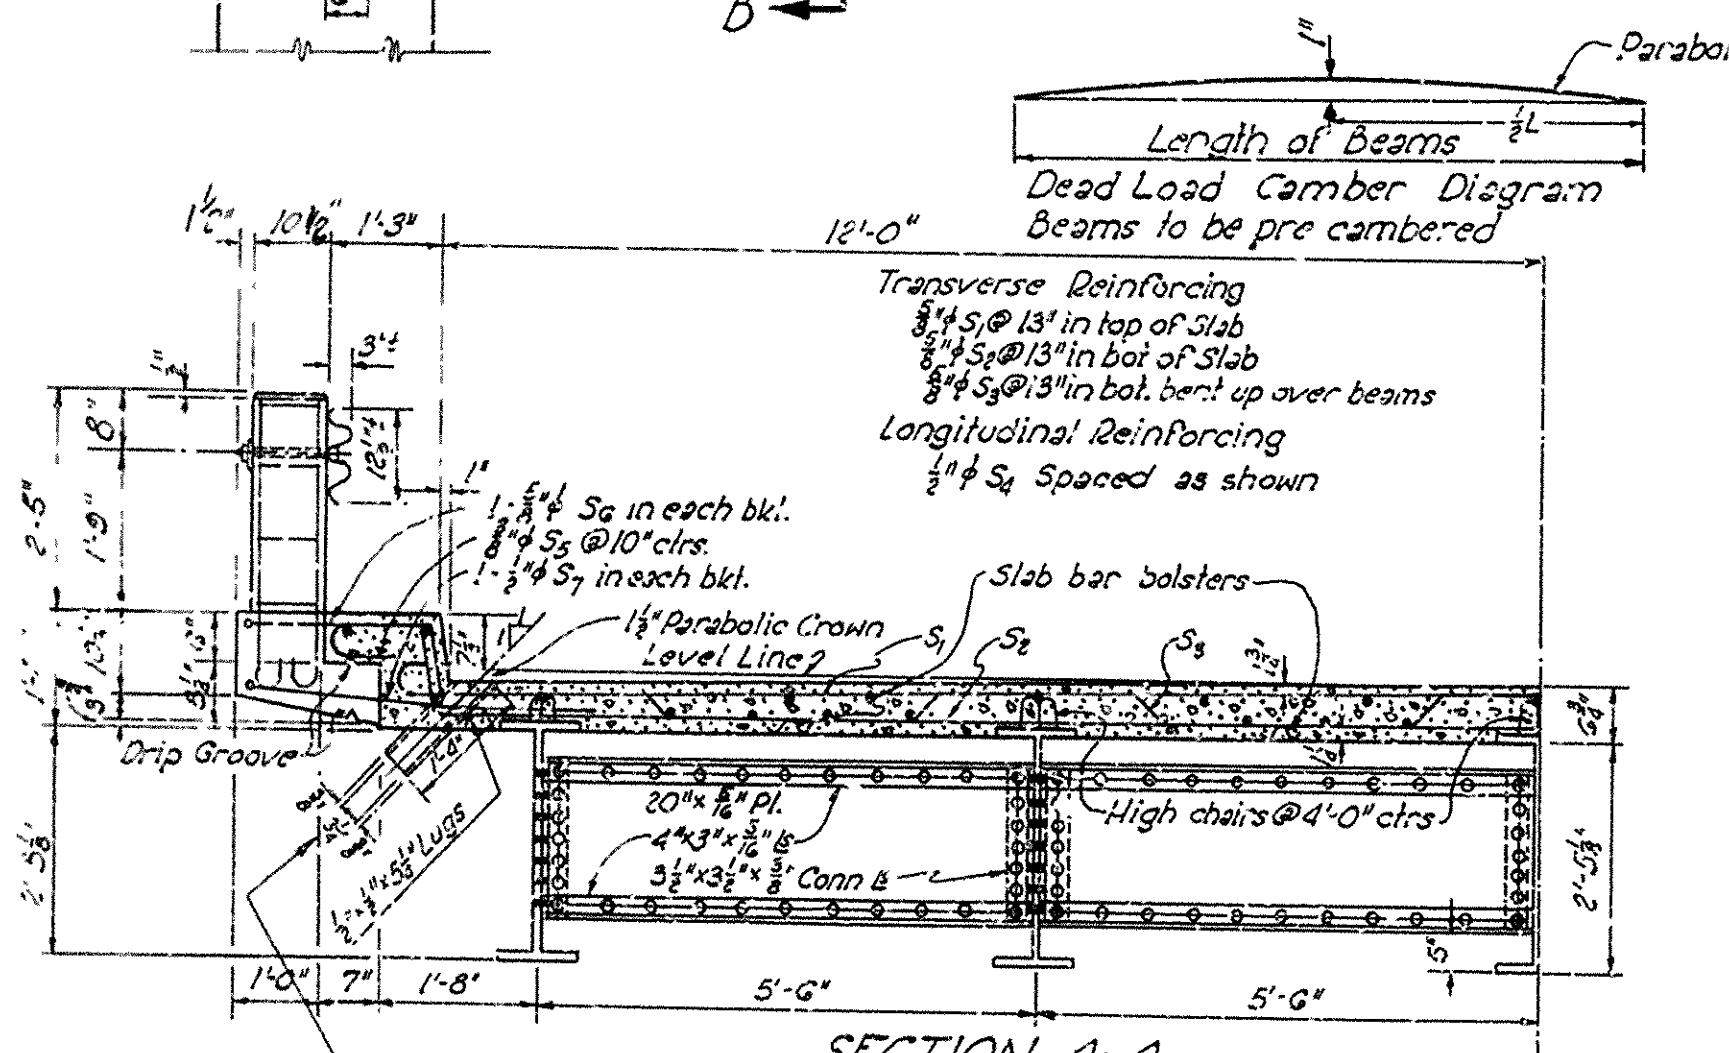 B
1"
Parabol
½L
Length of Beams
Dead Load Camber Diagram
Beams to be pre cambered
1½" 10½" 1'-3" 12'-0"
Transverse Reinforcing
⅝"ϕ S₁ @ 13" in top of Slab
⅝"ϕ S₂ @ 13" in bot of Slab
⅝"ϕ S₃ @ 13" in bot. bent up over beams
Longitudinal Reinforcing
½"ϕ S₄ Spaced as shown
8"
2'-5"
1'-9"
1"
1-⅝"ϕ S₆ in each bkt.
S₅ @ 10" ctrs.
1-½"ϕ S₇ in each bkt.
Slab bar bolsters
1½" Parabolic Crown
Level Line
S₁ S₂ S₃
Drip Groove
6¾"
20" x 5/16" Pl.
4" x 3" x 5/16" Ls
3½" x 3½" x ⅝" Conn Ls
High chairs @ 4'-0" ctrs
Lugs
2'-5⅛"
2'-5⅛"
5"
1'-0" 7" 1'-8" 5'-6" 5'-6"
SECTION A-A